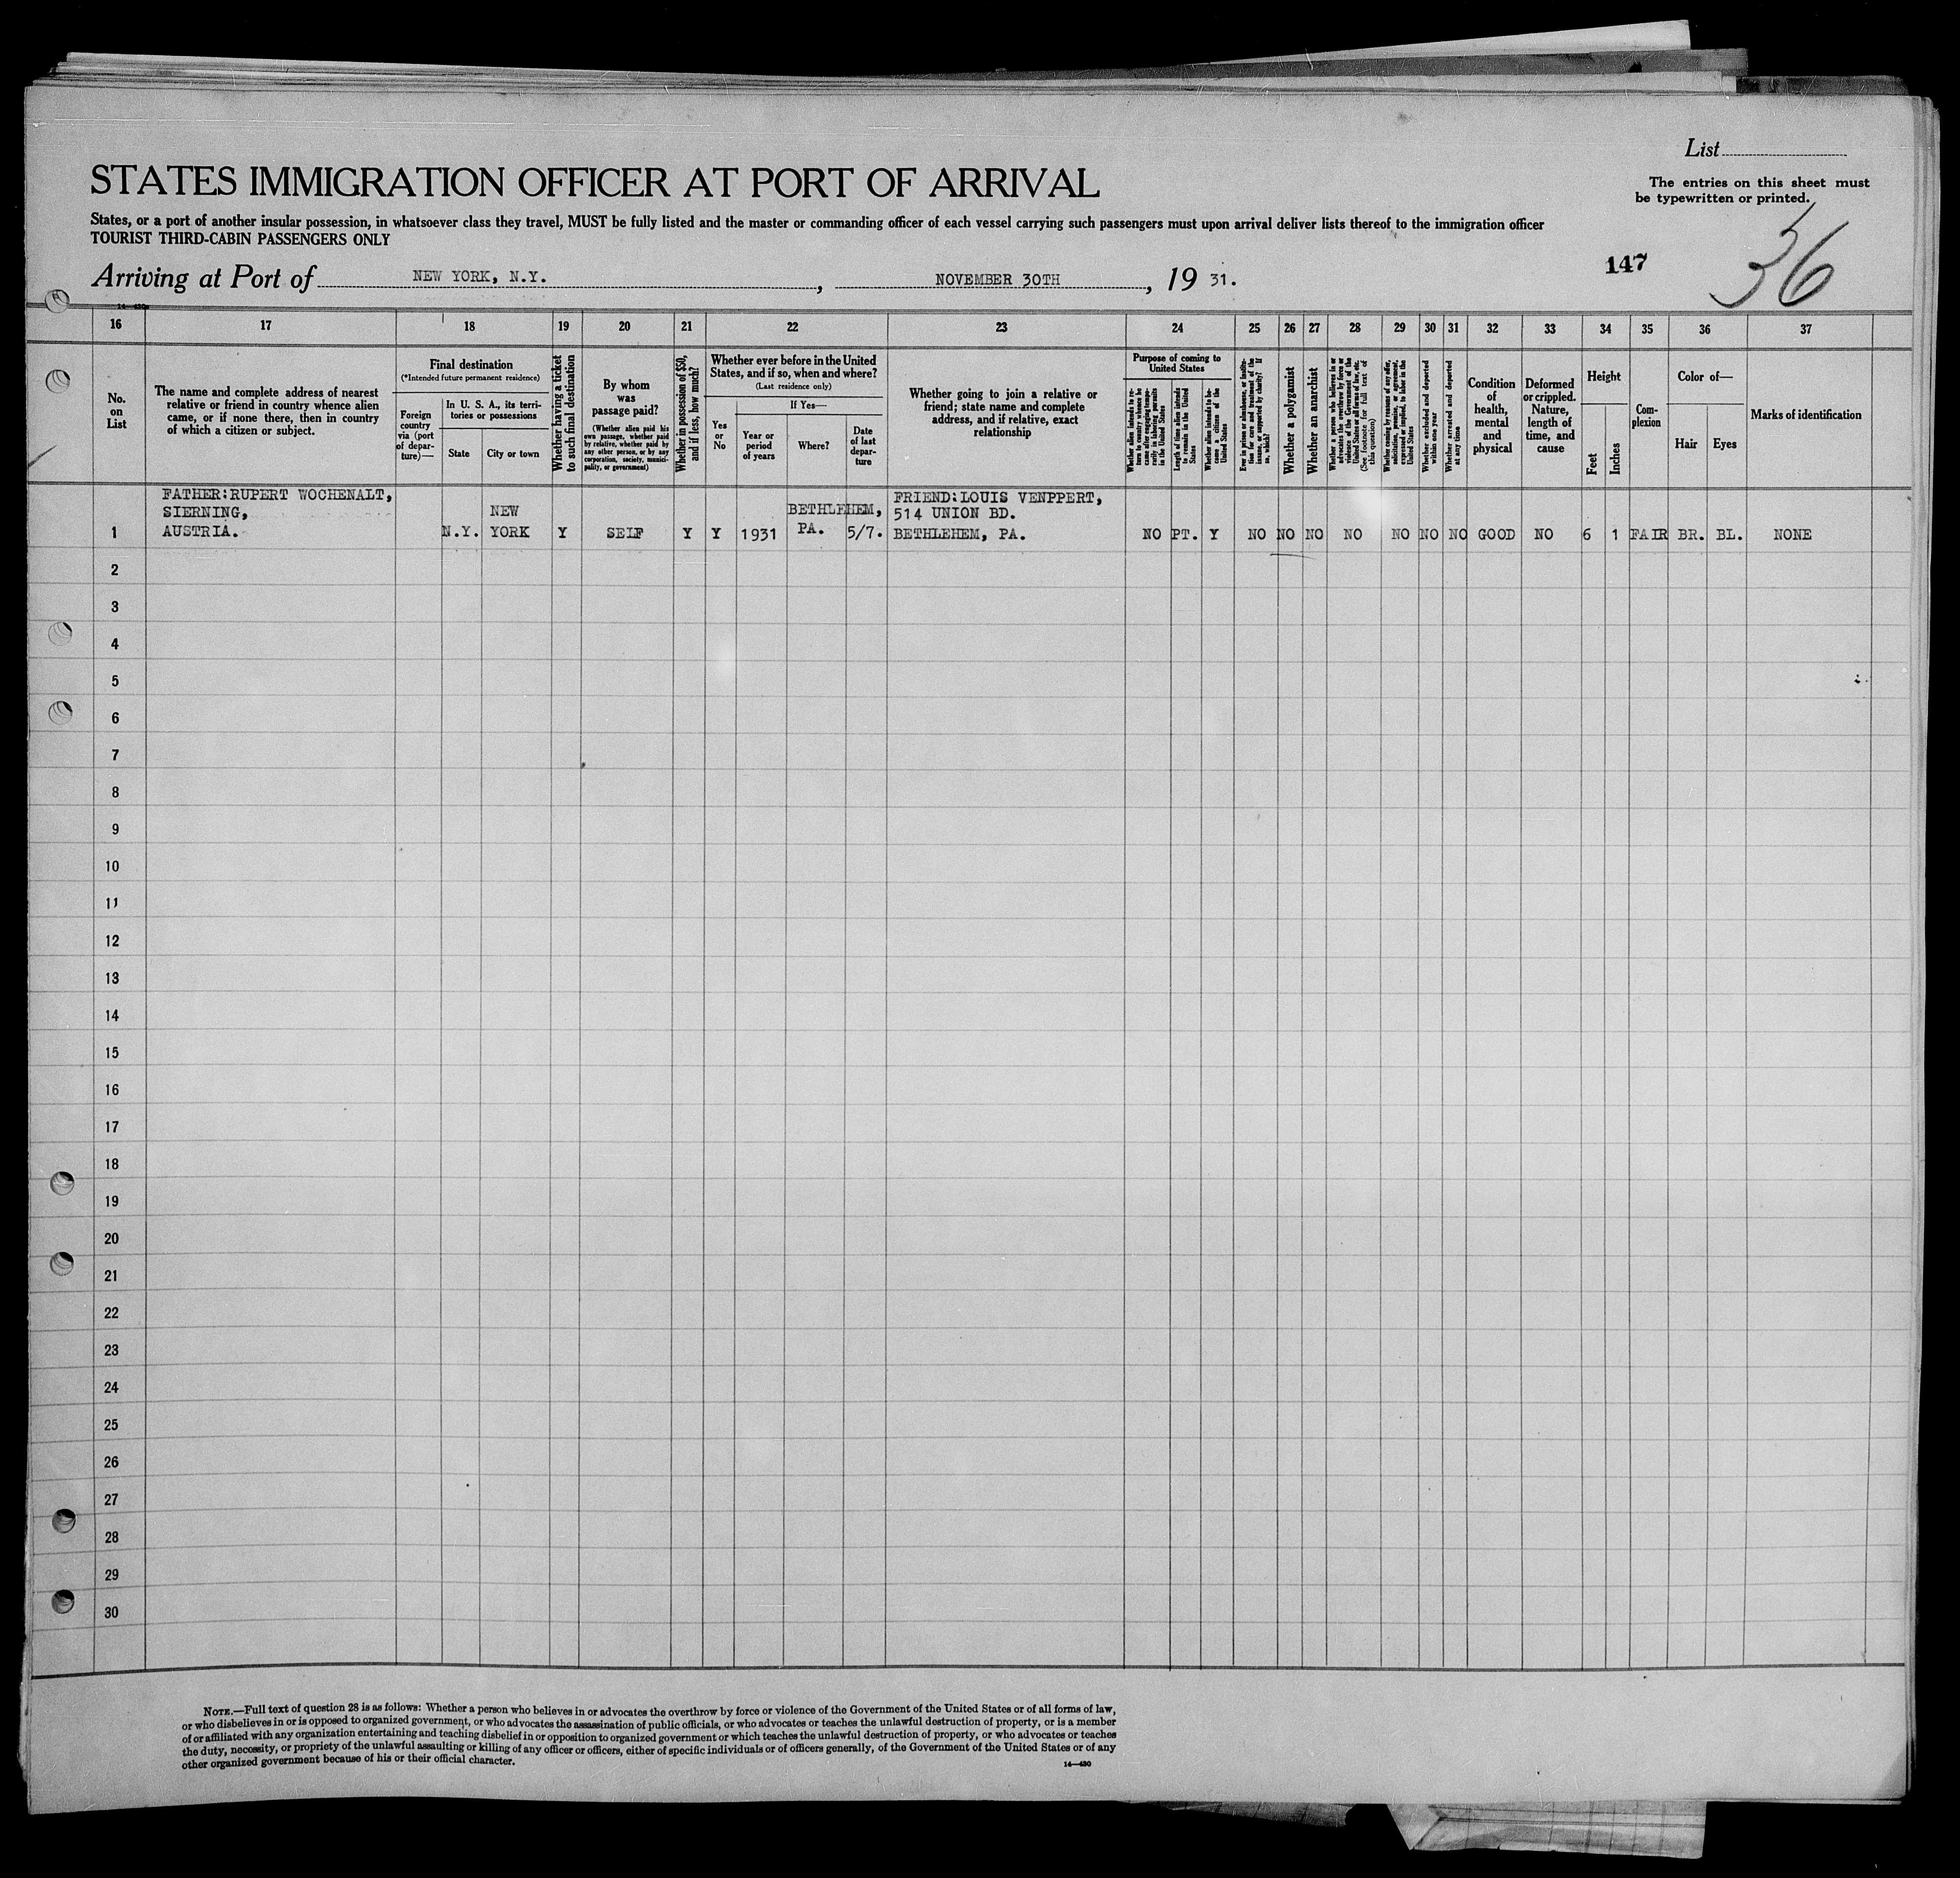 List
The entries on this sheet must
be typewritten or printed.
STATES IMMIGRATION OFFICER AT PORT OF ARRIVAL
States, or a port of another insular possession, in whatsoever class they travel, MUST be fully listed and the master or commanding officer of each vessel carrying such passengers must upon arrival deliver lists thereof to the immigration officer
TOURIST THIRD-CABIN PASSENGERS ONLY
147
36
Arriving at Port of NEW YORK, N.Y. , NOVEMBER 30TH , 19 31.
14—430
16 17 18 19 20 21 22 23 24 25 26 27 28 29 30 31 32 33 34 35 36 37
No.
on
List
The name and complete address of nearest
relative or friend in country whence alien
came, or if none there, then in country
of which a citizen or subject.
Final destination
(*Intended future permanent residence)
Foreign
country
via (port
of depar-
ture)—
In U. S. A., its terri-
tories or possessions
State
City or town
Whether having a ticket
to such final destination
By whom
was
passage paid?
(Whether alien paid his
own passage, whether paid
by relative, whether paid by
any other person, or by any
corporation, society, munici-
pality, or government)
Whether in possession of $50,
and if less, how much?
Whether ever before in the United
States, and if so, when and where?
(Last residence only)
Yes
or
No
If Yes—
Year or
period
of years
Where?
Date
of last
depar-
ture
Whether going to join a relative or
friend; state name and complete
address, and if relative, exact
relationship
Purpose of coming to
United States
Whether alien intends to re-
turn to country whence he
came after engaging tempo-
rarily in laboring pursuits
in the United States
Length of time alien intends
to remain in the United
States
Whether alien intends to be-
come a citizen of the
United States
Ever in prison or almshouse, or institu-
tion for care and treatment of the
insane, or supported by charity? If
so, which?
Whether a polygamist
Whether an anarchist
Whether a person who believes in or
advocates the overthrow by force or
violence of the Government of the
United States or all forms of law, etc.
(See footnote for full text of
this question)
Whether coming by reason of any offer,
solicitation, promise, or agreement,
expressed or implied, to labor in the
United States
Whether excluded and deported
within one year
Whether arrested and deported
at any time
Condition
of
health,
mental
and
physical
Deformed
or crippled.
Nature,
length of
time, and
cause
Height
Feet
Inches
Com-
plexion
Color of—
Hair
Eyes
Marks of identification
FATHER:RUPERT WOCHENALT,
SIERNING,
AUSTRIA.
1
N.Y.
NEW
YORK
Y
SELF
Y
Y
1931
BETHLEHEM,
PA.
5/7.
FRIEND:LOUIS VENPPERT,
514 UNION BD.
BETHLEHEM, PA.
NO PT. Y NO NO NO NO NO NO NO GOOD NO 6 1 FAIR BR. BL. NONE
2
3
4
5
6
7
8
9
10
11
12
13
14
15
16
17
18
19
20
21
22
23
24
25
26
27
28
29
30
NOTE.—Full text of question 28 is as follows: Whether a person who believes in or advocates the overthrow by force or violence of the Government of the United States or of all forms of law,
or who disbelieves in or is opposed to organized government, or who advocates the assassination of public officials, or who advocates or teaches the unlawful destruction of property, or is a member
of or affiliated with any organization entertaining and teaching disbelief in or opposition to organized government or which teaches the unlawful destruction of property, or who advocates or teaches
the duty, necessity, or propriety of the unlawful assaulting or killing of any officer or officers, either of specific individuals or of officers generally, of the Government of the United States or of any
other organized government because of his or their official character.
14—430